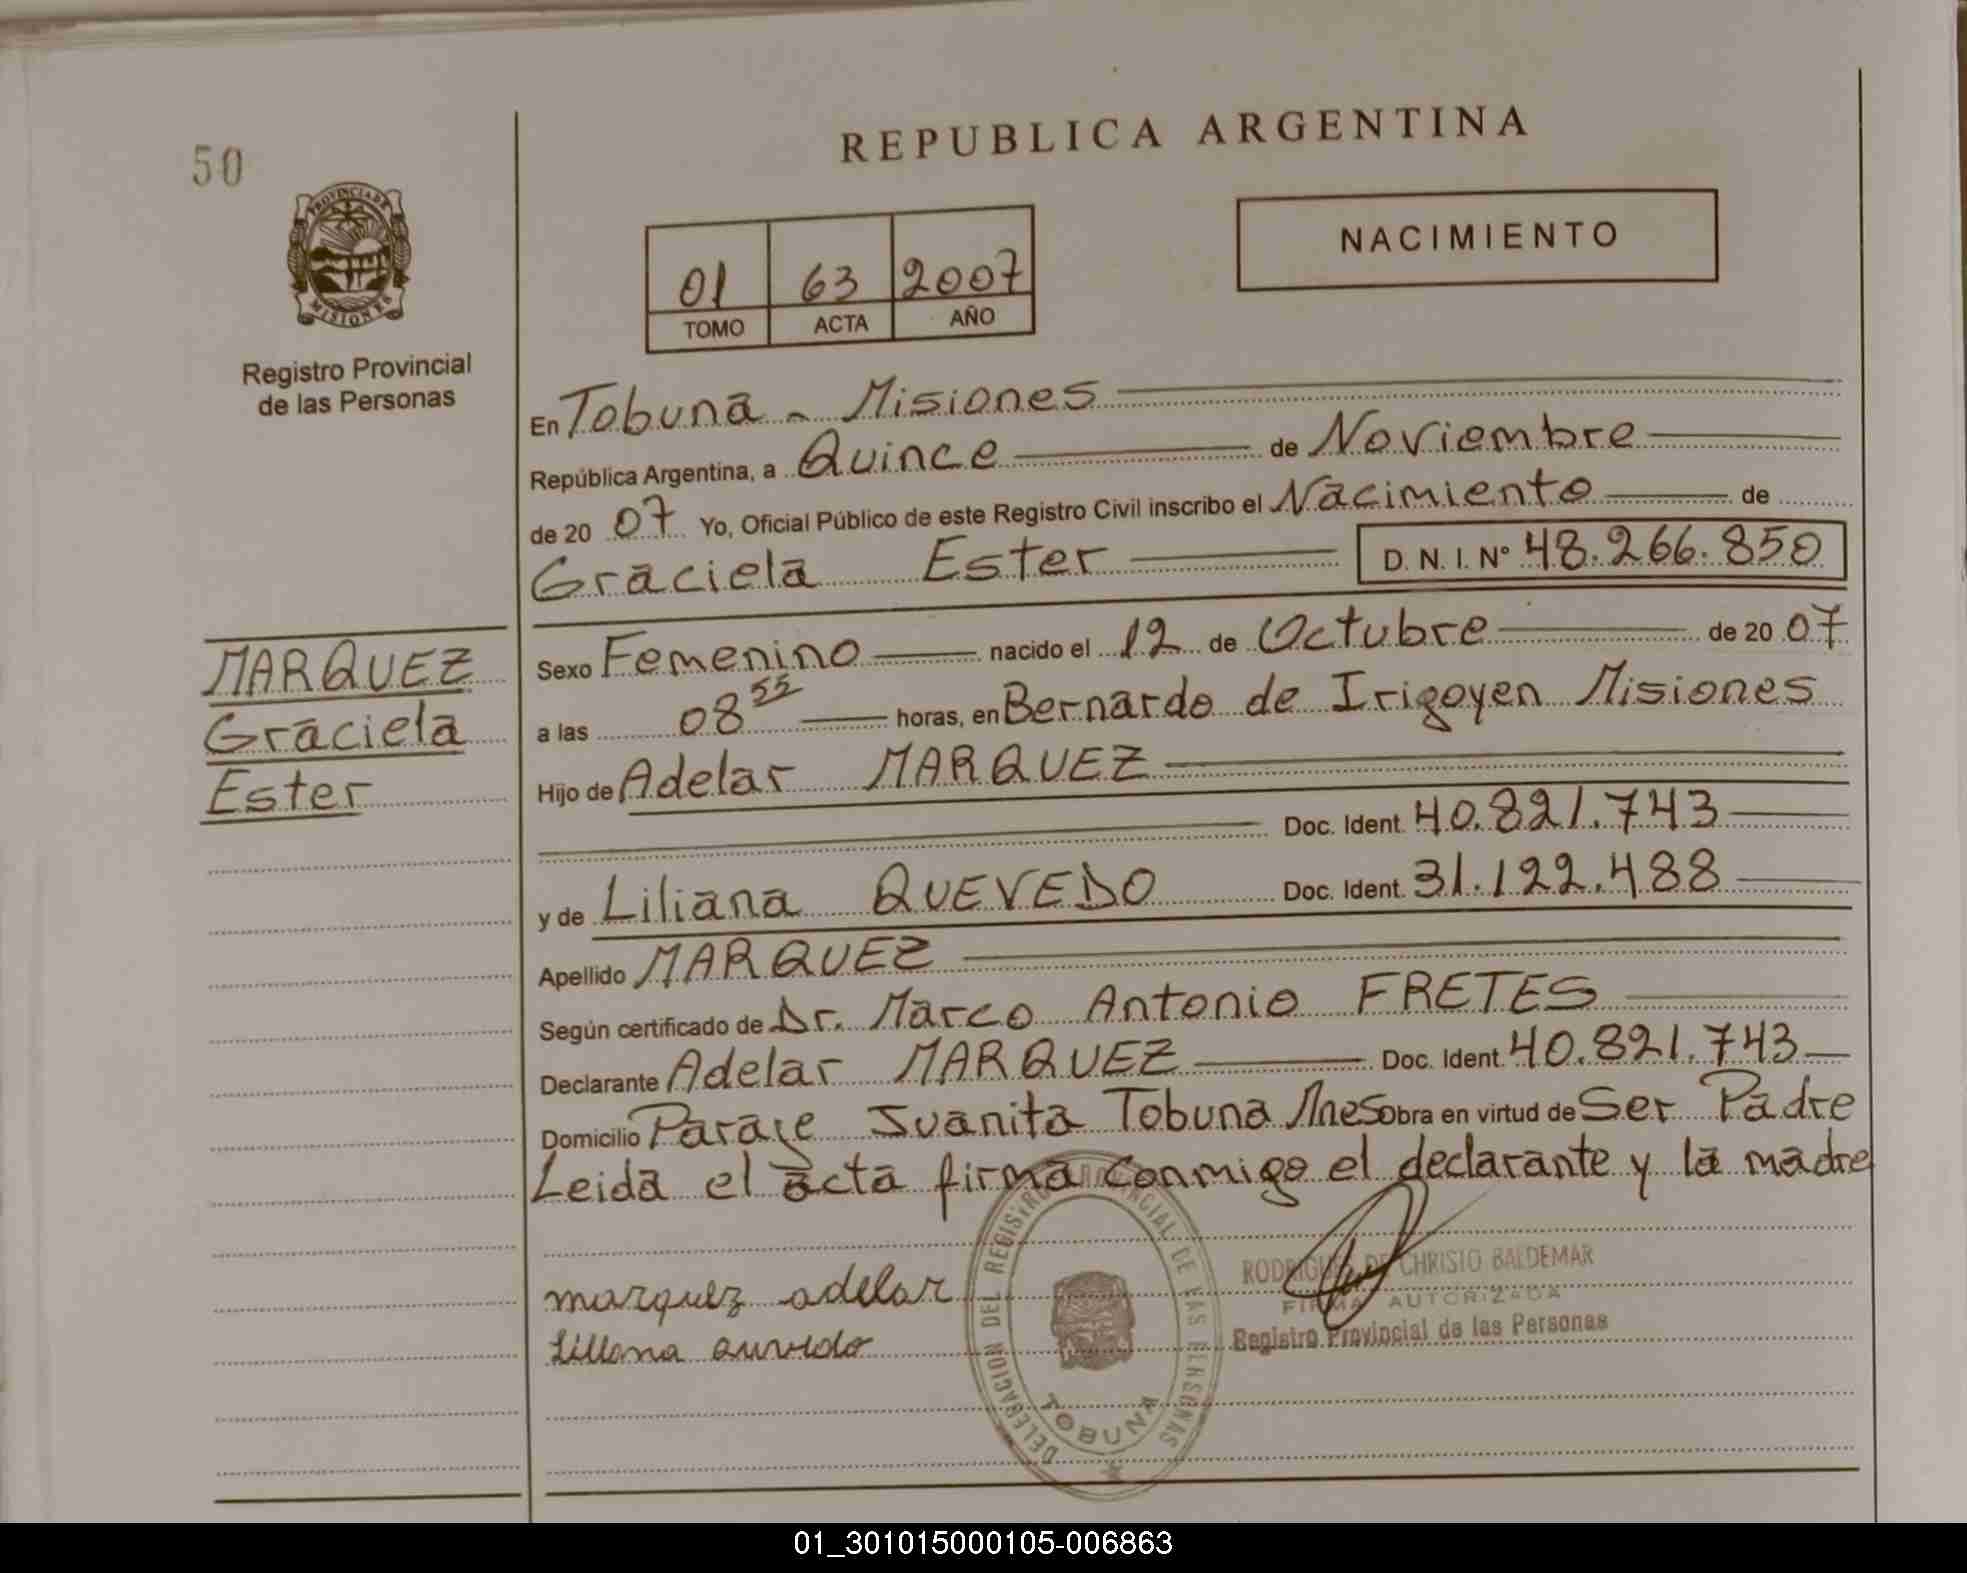 50
REPUBLICA ARGENTINA
PROVINCIA DE
MISIONES
Registro Provincial
de las Personas
NACIMIENTO
01 63 2007
TOMO ACTA AÑO
En Tobuna - Misiones
República Argentina, a Quince de Noviembre
de 20 07 Yo, Oficial Público de este Registro Civil inscribo el Nacimiento de
Graciela Ester D. N. I. Nº 48.266.850
MARQUEZ
Graciela
Ester
Sexo Femenino nacido el 12 de Octubre de 20 07
a las 08 55 horas, en Bernardo de Irigoyen Misiones
Hijo de Adelar MARQUEZ
Doc. Ident. 40.821.743
y de Liliana QUEVEDO Doc. Ident. 31.122.488
Apellido MARQUEZ
Según certificado de Dr. Marco Antonio FRETES
Declarante Adelar MARQUEZ Doc. Ident. 40.821.743
Domicilio Paraje Juanita Tobuna Mnes obra en virtud de Ser Padre
Leida el acta firma conmigo el declarante y la madre
marquez adelar
DELEGACION DEL REGISTRO PROVINCIAL DE LAS PERSONAS
TOBUNA
DE CHRISTO BALDEMAR
FIRMA AUTORIZADA
Registro Provincial de las Personas
01_301015000105-006863